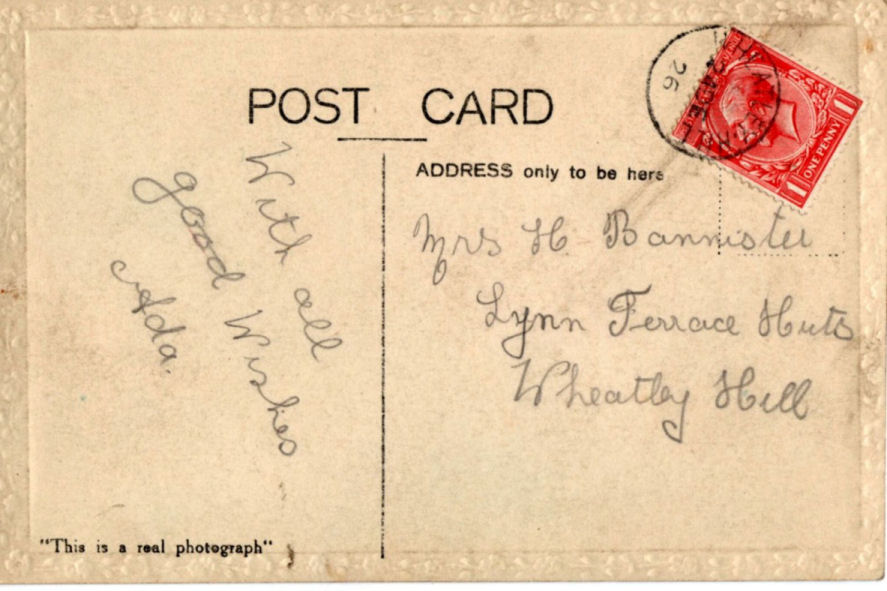 POST CARD
ADDRESS only to be here
With all
good Wishes
Ada.
Mrs H. Bannister
Lynn Terrace Huts
Wheatley Hill
"This is a real photograph"
26
ONE PENNY
1
1